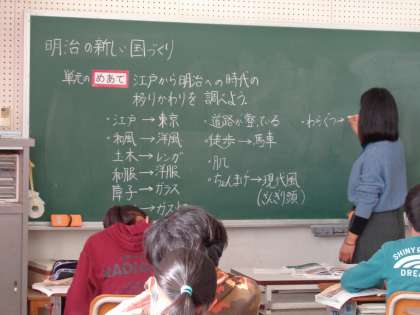 明治の新しい国づくり
単元の めあて 江戸から明治への時代の
移りかわりを 調べよう
・江戸→東京
・和風→洋風
土木→レンガ
和服→洋服
障子→ガラス
→ガスト
・道路が整っている
・徒歩→馬車
・肌
・ちょんまげ→現代風
(ざんぎり頭)
・わらぐつ→
SHINY
DREA